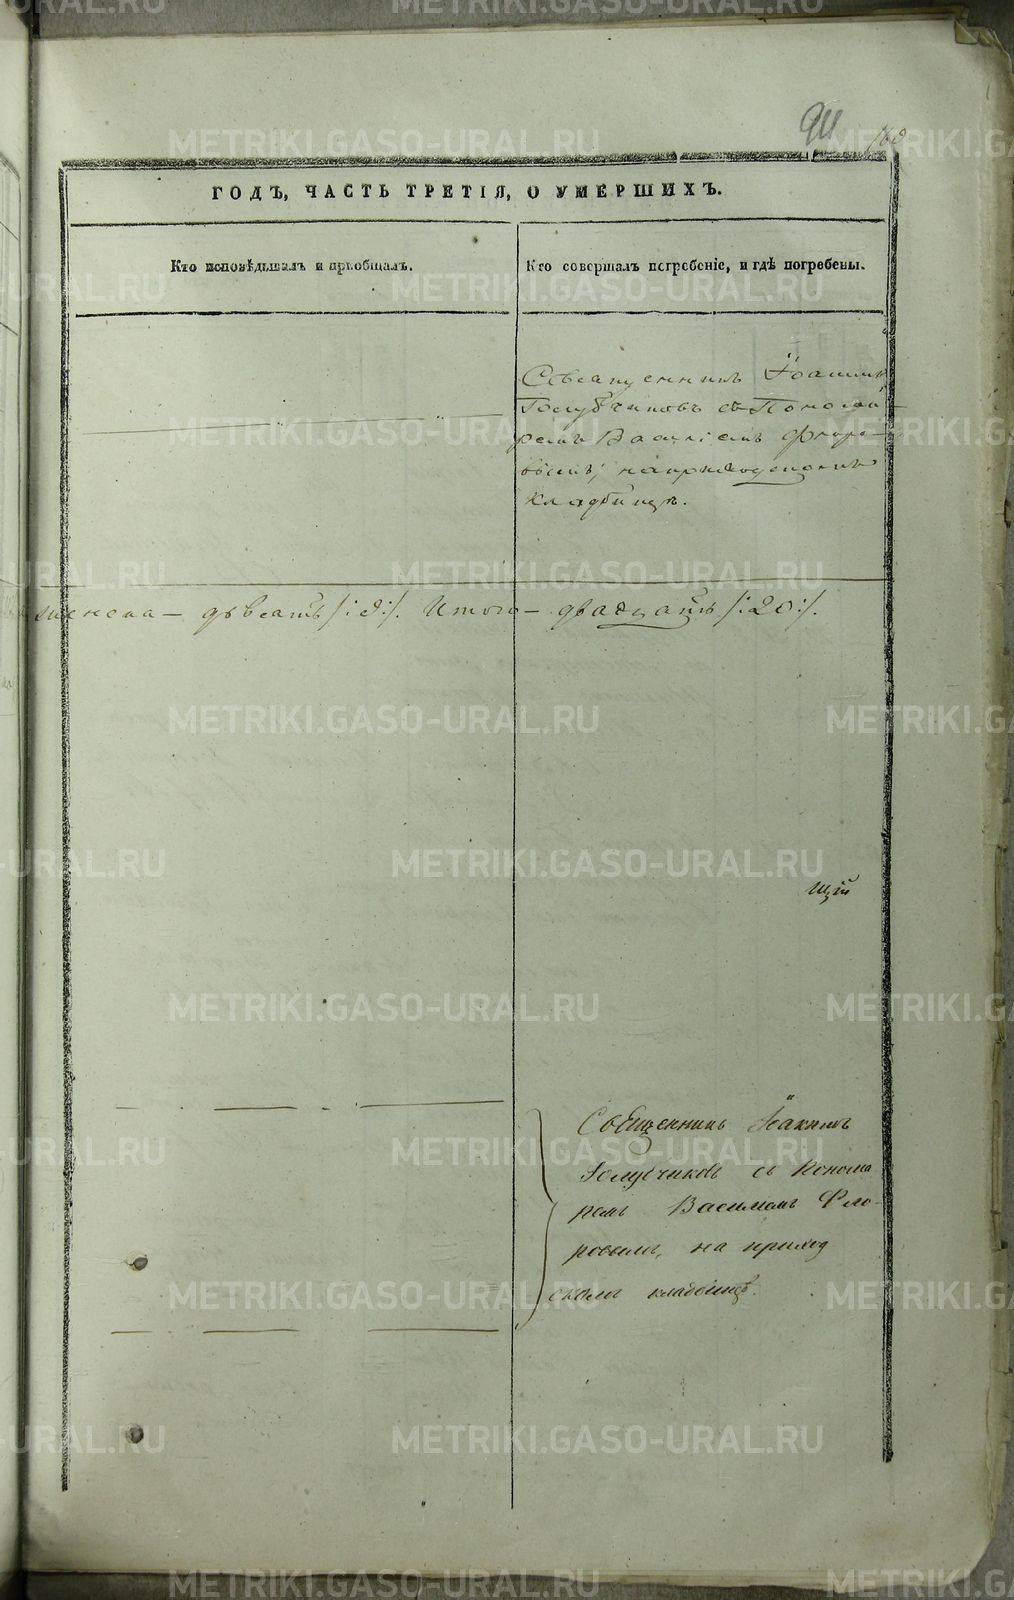 94
ГОДЪ, ЧАСТЬ ТРЕТІЯ, О УМЕРШИХЪ.
Кто исповѣдывалъ и пріобщалъ.
Кто совершалъ погребеніе, и гдѣ погребены.
Священникъ Іоакимъ
Голубчиковъ съ Понома-
ремъ Василіемъ Флоро-
вымъ, на приходскомъ
кладбищѣ.
девять /:9:/. Итого — двадцать /:20:/.
щій
Священникъ Іоакимъ
Голубчиковъ съ Понома
ремъ Василіемъ Фло-
ровымъ, на приход
скомъ кладбищѣ.
METRIKI.GASO-URAL.RU